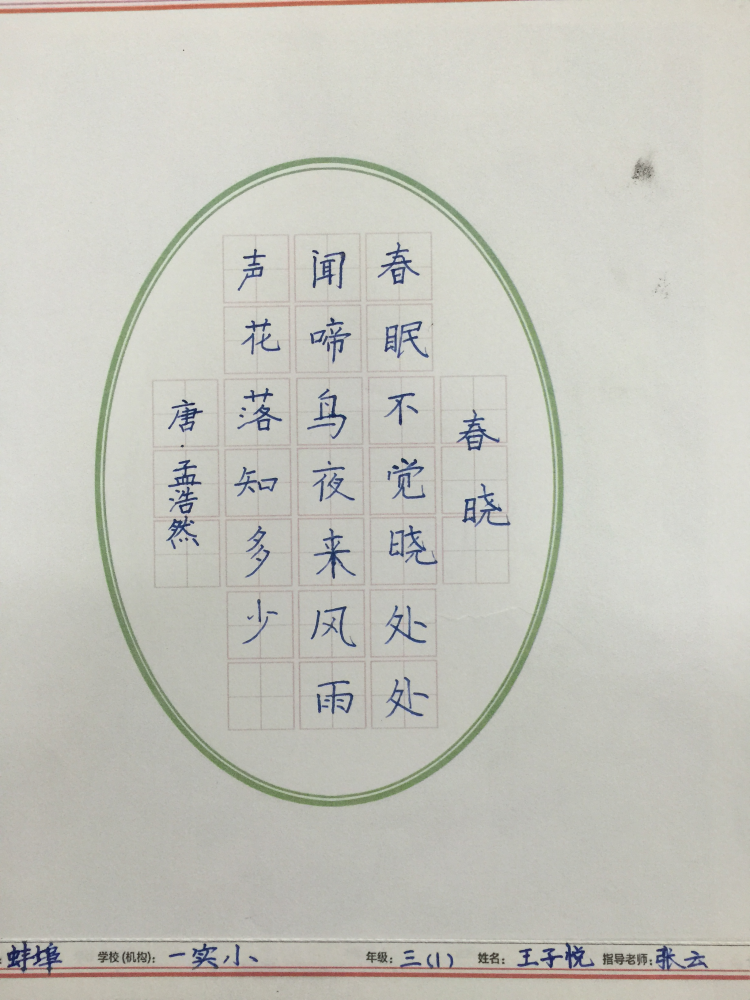 春晓
春眠不觉晓处处
闻啼鸟夜来风雨
声花落知多少
唐·孟浩然
蚌埠 学校(机构)：一实小 年级：三(1) 姓名：王子悦 指导老师：张云